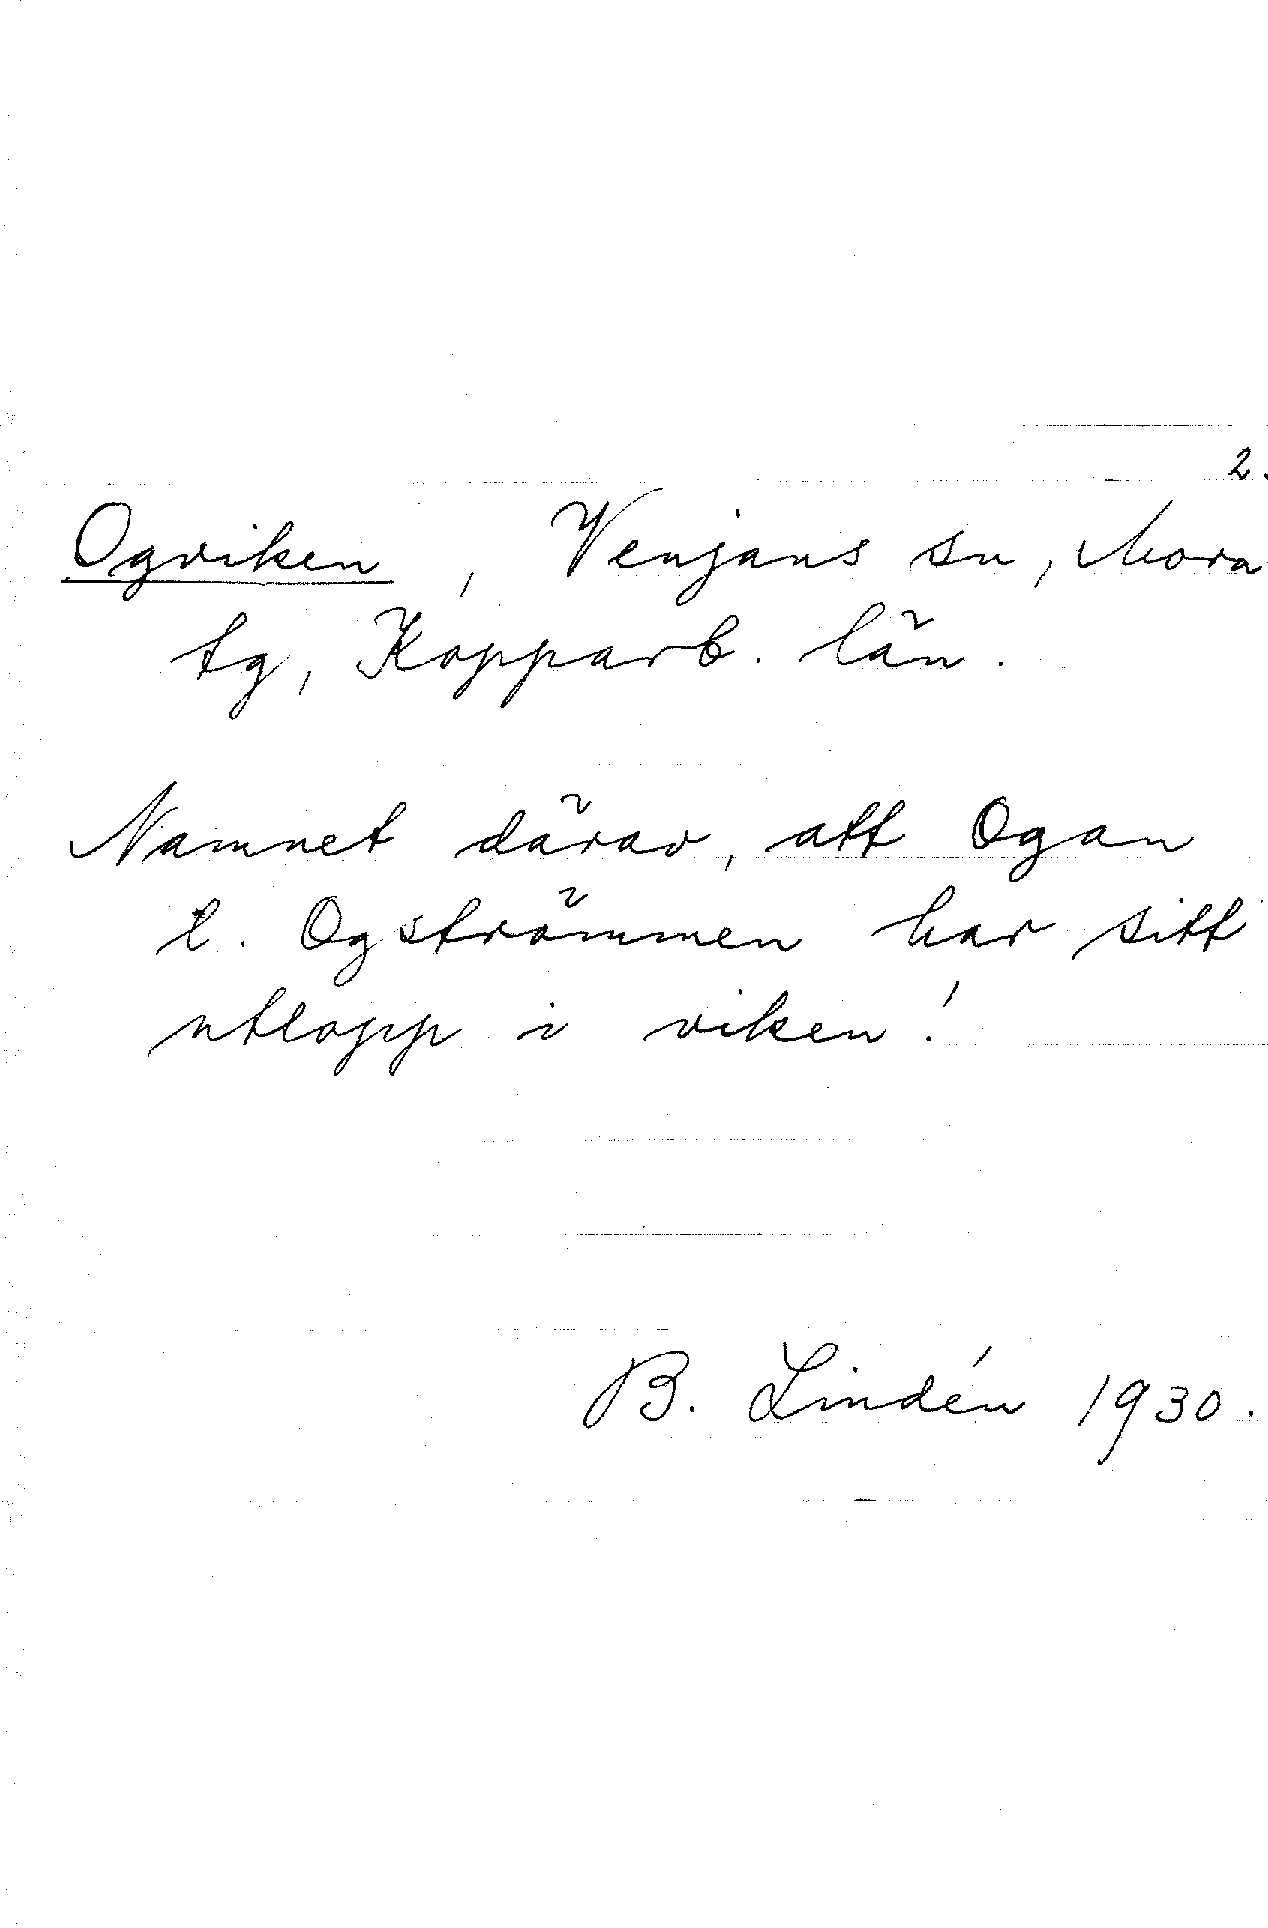 2.
Ogviken, Venjans sn, Mora
tg, Kopparb. län.
Namnet därav, att Ogan
l. Ogströmmen har sitt
utlopp i viken!
B. Lindén 1930.